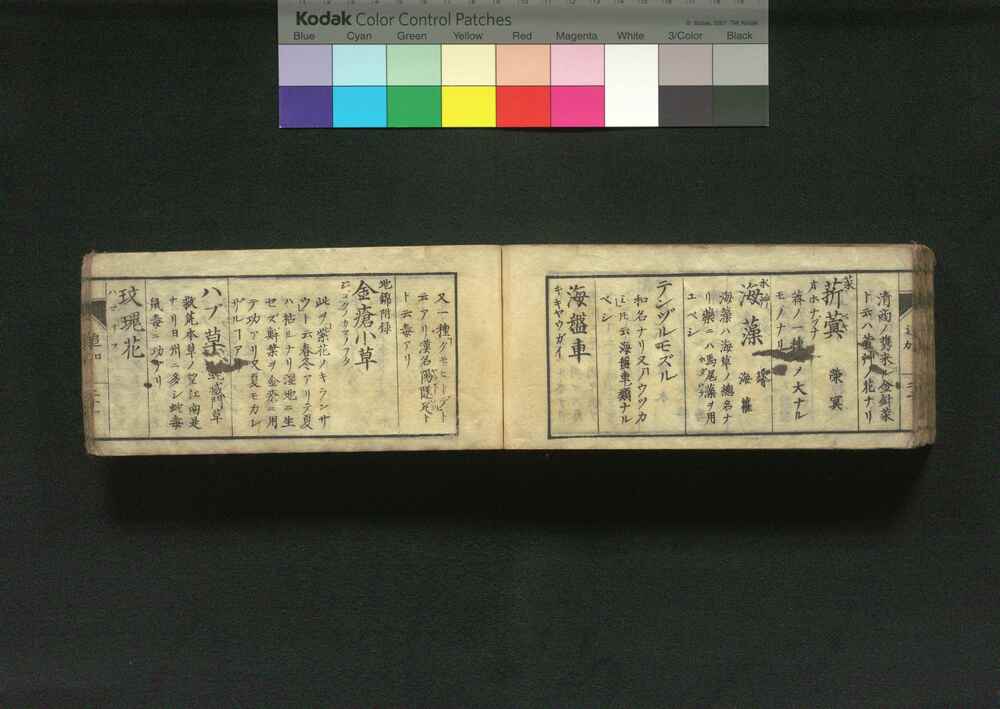 Kodak Color Control Patches
Blue Cyan Green Yellow Red Magenta White 3/Color Black
清商ノ携来ル金針菜
ト云ハ萱艸ノ花ナリ
菥蓂 榮冥
オホナヅナ
薺ノ一種ノ大ナル
モノナリ
海藻 海蘿
海藻ハ海草ノ總名ナ
リ藥ニハ馬尾藻ヲ用
ユベシ
テンヅルモズル
和名ナリ又ハウツカ
ヒトモ云海盤車類ナル
ベシ
海盤車
キキヤウガイ
又一種クモヒトデト
云アリ漢名陽遂足ト
ト云毒アリ
地錦附録
金瘡小草
ジゴクノカマノフタ
此ヲ紫花ノキランサ
ウト云春冬アリテ夏
ハ枯ルナリ湿地ニ生
ゼズ斯葉ヲ金瘡ニ用
テ功アリ又夏モカレ
ザルーアリ
ハブ草
救荒本草ノ望江南是
ナリ日州ニ多シ蛇毒
玫瑰花